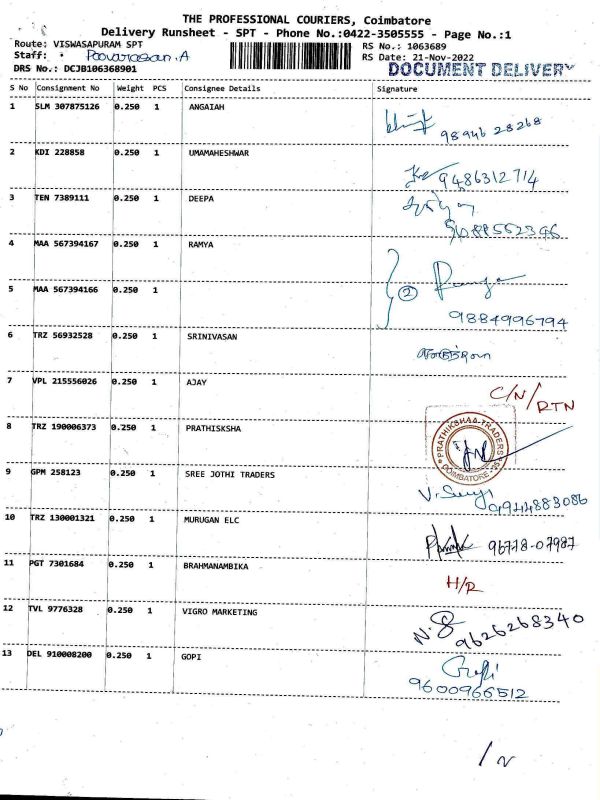 THE PROFESSIONAL COURIERS, Coimbatore
Delivery Runsheet - SPT - Phone No.:0422-3505555 - Page No.:1
Route: VISWASAPURAM SPT RS No.: 1063689
Staff: Poovarasan.A RS Date: 21-Nov-2022
DRS No.: DCJB106368901 DOCUMENT DELIVERY
S No Consignment No Weight PCS Consignee Details Signature
1 SLM 307875126 0.250 1 ANGAIAH
98946 28268
2 KDI 228858 0.250 1 UMAMAHESHWAR
9486312714
3 TEN 7389111 0.250 1 DEEPA
4 MAA 567394167 0.250 1 RAMYA
5 MAA 567394166 0.250 1 2 Ramya
9884996794
6 TRZ 56932528 0.250 1 SRINIVASAN
7 VPL 215556026 0.250 1 AJAY
C/N/RTN
8 TRZ 190006373 0.250 1 PRATHISKSHA
PRATHIKSHAA-TRADERS
COIMBATORE-35
9 GPM 258123 0.250 1 SREE JOTHI TRADERS
9944883086
10 TRZ 130001321 0.250 1 MURUGAN ELC
96778-07987
11 PGT 7301684 0.250 1 BRAHMANAMBIKA
H/R
12 TVL 9776328 0.250 1 VIGRO MARKETING
9626268340
13 DEL 910008200 0.250 1 GOPI
Gopi
9600966512
/ N